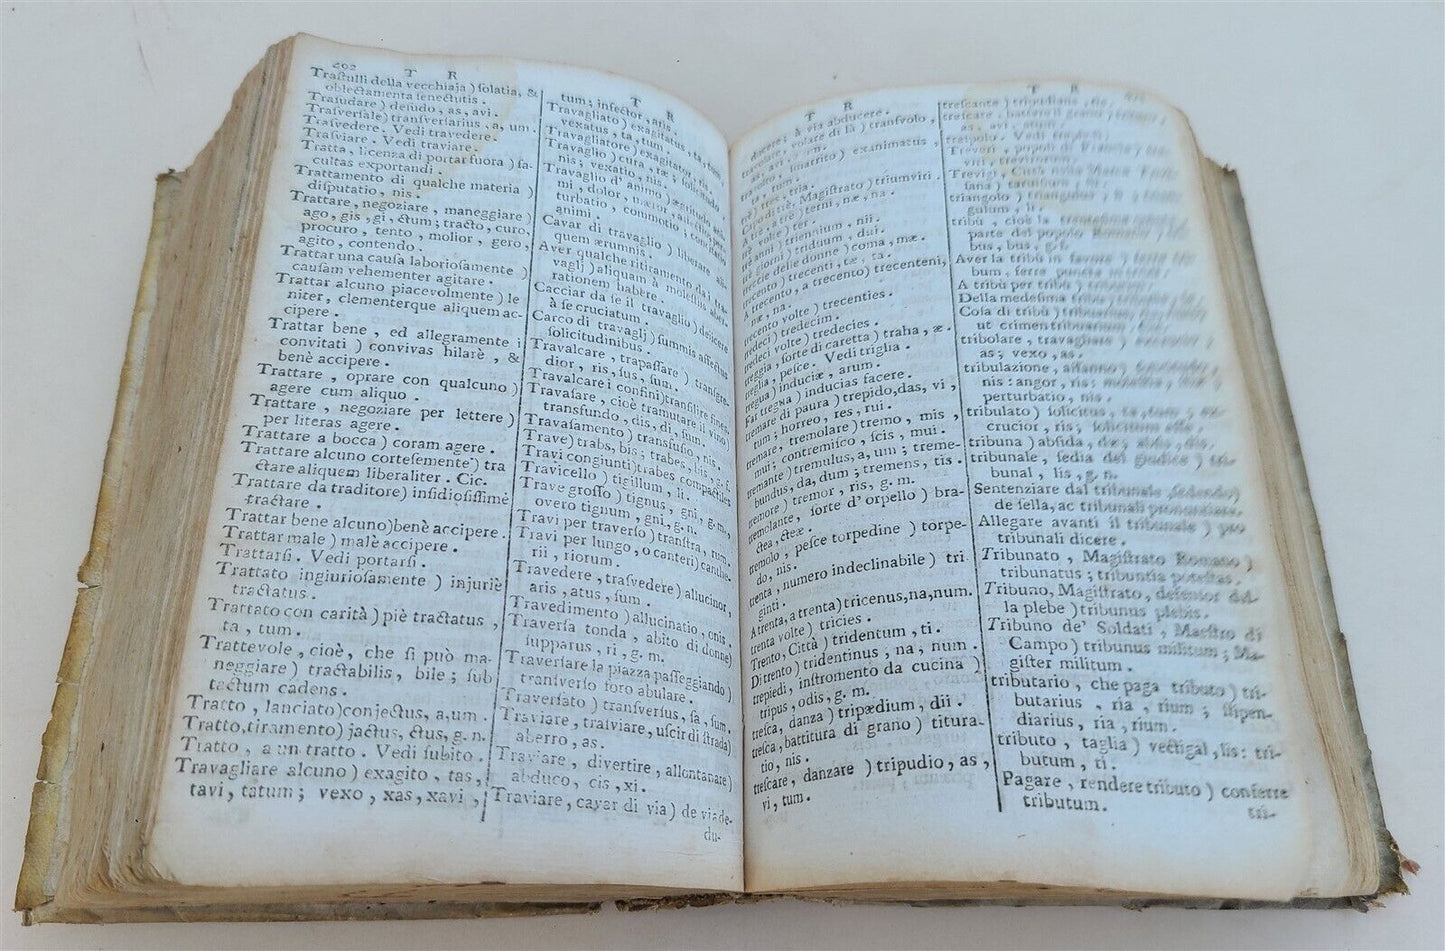 T R
Traſtulli della vecchiaja ) ſolatia, &
oblectamenta ſenectutis.
Traſudare ) deſudo, as, avi.
Traſverſale) tranſverſarius, a, um.
Traſvedere. Vedi travedere.
Traſviare. Vedi traviare.
Tratta, licenza di portar fuora ) fa-
cultas exportandi.
Trattamento di qualche materia )
diſputatio, nis.
Trattare, negoziare, maneggiare )
ago, gis, gi, ctum; tracto, curo,
procuro, tento, molior, gero,
agito, contendo.
Trattar una cauſa laborioſamente )
cauſam vehementer agitare.
Trattar alcuno piacevolmente ) le
niter, clementerque aliquem ac-
cipere.
Trattar bene, ed allegramente i
convitati ) convivas hilarè, &
benè accipere.
Trattare, oprare con qualcuno )
agere cum aliquo.
Trattare, negoziare per lettere )
per literas agere.
Trattare a bocca ) coram agere.
Trattare alcuno corteſemente ) tra
ctare aliquem liberaliter. Cic.
Trattare da traditore) inſidioſiſſimè
tractare.
Trattar bene alcuno)benè accipere.
Trattar male) malè accipere.
Trattarſi. Vedi portarſi.
Trattato ingiurioſamente ) injuriè
tractatus.
Trattato con carità) piè tractatus,
ta, tum.
Trattevole, cioè, che ſi può ma-
neggiare) tractabilis, bile; ſub
tactum cadens.
Tratto, lanciato)conjectus, a, um.
Tratto,tiramento) jactus, ctus, g. n.
Tratto, a un tratto. Vedi ſubito.
Travagliare alcuno) exagito, tas,
tavi, tatum; vexo, xas, xavi,
T R
tum; inſector, aris.
Travagliato) exagitatus, ta, tum;
vexatus, ta, tum.
Travagliatore) exagitator, ris.
Travaglio) cura, ræ; ſolicitudo,
nis; vexatio, nis.
Travaglio d' animo) ægritudo ani-
mi, dolor, mæror,
turbatio, commotio,
animi.
Cavar di travaglio) liberare ali-
quem ærumnis.
Aver qualche ritiramento da i tra-
vaglj) aliquam à moleſtiis
rationem habère.
Cacciar da ſe il travaglio) deſicere
à ſe cruciatum.
Carco di travaglj) ſummis affectus
ſolicitudinibus.
Travalcare, trapaſſare) tranſgre-
dior, ris, ſus, ſum.
Travalcare i confini)tranſilire fines.
Travaſare, cioè tramutare il vino)
transfundo, dis, di, ſum.
Travaſamento) transfuſio, nis.
Trave) trabs, bis; trabes, bis, g. f.
Travi congiunti)trabes compactiles
Travicello) tigillum, li.
Trave groſſo) tignus, gni, g. m.
overo tignum, gni, g. n.
Travi per traverſo) tranſtra, rum.
Travi per lungo, o canterj) canthe-
rii, riorum.
Travedere, traſvedere) allucinor,
aris, atus, ſum.
Travedimento) allucinatio, onis.
Traverſa tonda, abito di donne)
ſupparus, ri, g. m.
Traverſare la piazza paſſeggiando)
tranſverſo foro abulare.
Traverſato) tranſverſus, ſa, ſum.
Traviare, traſviare, uſcir di ſtrada)
aberro, as.
Traviare, divertire, allontanare)
abduco, cis, xi.
Traviare, cavar di via) de via de-
du-
T R
ducere; à via abducere.
volare di là) tranſvolo,
ſmarrito) exanimatus,
tum.
tres, tria.
Magiſtrato) triumviri.
A tre, a tre) terni, næ, na.
triennium, nii.
giorni) triduum, dui.
delle donne) coma, mæ.
trecenti, tæ, ta.
A trecento, a trecento) trecenteni,
næ, na.
trecento volte) trecenties.
tredeci) tredecim.
tredeci volte) tredecies.
treggia, ſorte di caretta) traha, æ.
treglia, peſce. Vedi triglia.
tregua) induciæ, arum.
Far tregua) inducias facere.
tremare di paura) trepido,das, vi,
tum; horreo, res, rui.
tremare, tremolare) tremo, mis,
mui; contremiſco, ſcis, mui.
tremante) tremulus, a, um; treme-
bundus, da, dum; tremens, tis.
tremore) tremor, ris, g. m.
tremolante, ſorte d' orpello) bra-
ctea, cteæ.
tremolo, peſce torpedine) torpe-
do, nis.
trenta, numero indeclinabile) tri-
ginti.
A trenta, a trenta) tricenus,na,num.
trenta volte) tricies.
Trento, Città) tridentum, ti.
Di trento) tridentinus, na, num.
trepiedi, inſtromento da cucina)
tripus, odis, g. m.
treſca, danza) tripædium, dii.
treſca, battitura di grano) titura-
tio, nis.
treſcare, danzare) tripudio, as,
vi, tum.
T R
treſcante) tripudians, tis.
treſcare, battere il grano)
as, avi, atum.
Treveri, popoli di Francia)
viri, trevirorum.
Trevigi, Città nella Marca Trivi-
ſana) tarviſium, ſii.
triangolo) triangulus, li;
gulum, li.
tribù, cioè la
parte del popolo Romano)
bus, bus, g. f.
Aver la tribù in favore)
bum, ferre puncta in tribu.
A tribù per tribù) tributim.
Della medeſima tribù)
Coſa di tribù) tribuarius,
ut crimen tribuarium. Cic.
tribolare, travagliare)
as; vexo, as.
tribulazione, affanno)
nis: angor, ris; moleſtia, tiæ;
perturbatio, nis.
tribulato) ſolicitus, ta, tum;
crucior, ris; ſolicitum eſſe.
tribuna) abſida, dæ; abſis, dis.
tribunale, ſedia del giudice) tri-
bunal, lis, g. n.
Sentenziare dal tribunale ſedendo)
de ſella, ac tribunali pronuntiare.
Allegare avanti il tribunale) pro
tribunali dicere.
Tribunato, Magiſtrato Romano)
tribunatus; tribuntia poteſtas.
Tribuno, Magiſtrato, defenſor del-
la plebe) tribunus plebis.
Tribuno de' Soldati, Maeſtro di
Campo) tribunus militum; Ma-
giſter militum.
tributario, che paga tributo) tri-
butarius, ria, rium; ſtipen-
diarius, ria, rium.
tributo, taglia) vectigal, lis: tri-
butum, ti.
Pagare, rendere tributo) conferre
tributum.
tri-